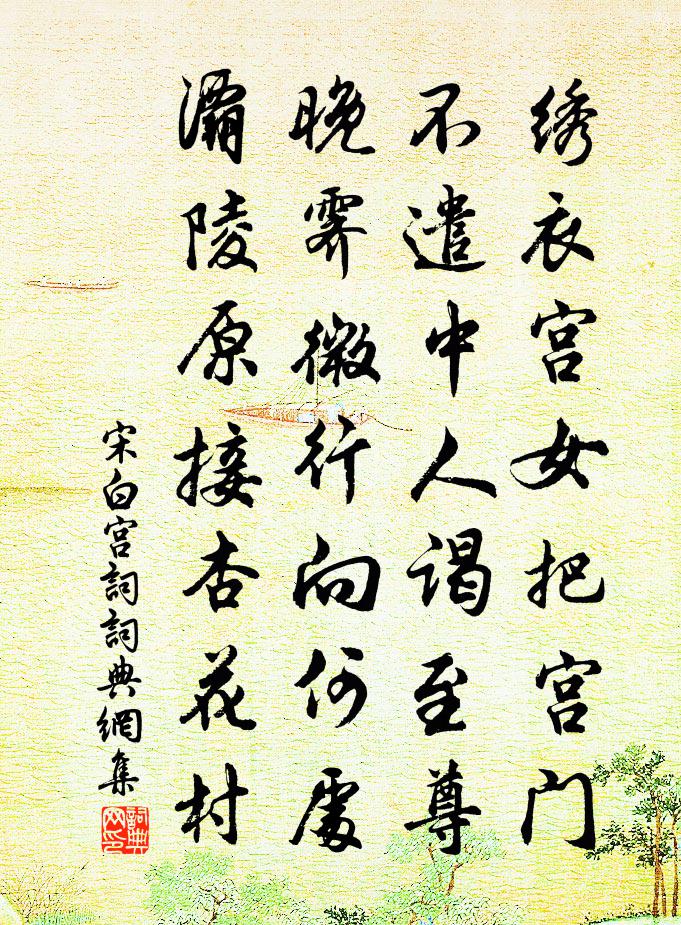 绣衣宫女把宫门
不遣中人谒至尊
晚霁微行向何處
灞陵原接杏花村
宋白宫詞詞典網集
詞典网印